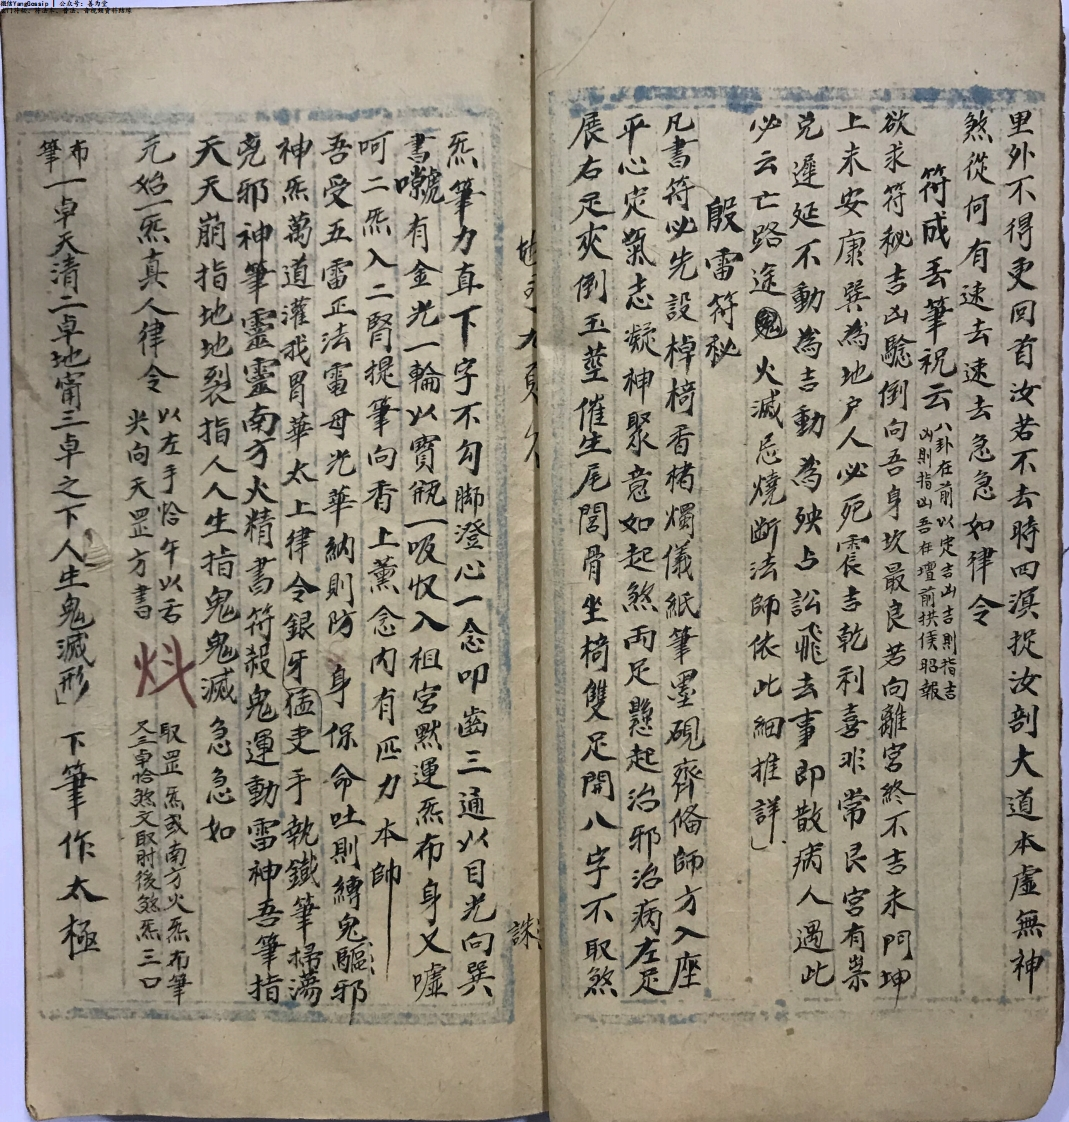 里外不得更回首汝若不去時四溟捉汝剖大道本虛無神
煞從何有速去速去急急如律令
符成丢筆祝云
八卦在前以定吉凶吉則指吉
凶則指凶吾在壇前拱候昭報
欲求符秘吉凶驗倒向吾身坎最良若向離宮終不吉未門坤
上未安康巽為地户人必死震吉乾利喜非常艮宮有祟
兑遲延不動為吉動為殃占訟飛去事即散病人遇此
必云亡路途鬼火滅忌燒斷法師依此細推詳
殷雷符秘
凡書符必先設棹椅香楮燭儀紙筆墨硯齊俻師方入座
平心定氣志凝神聚意如起煞两足懸起治邪治病左足
展右足夾倒玉莖催生尾閭骨坐椅雙足開八字不取煞
炁筆力直下字不勾脚澄心一念叩齒三通以目光向巽
書號有金光一輪以寶瓶一吸收入祖宮默運炁布身又噓
呵二炁入二腎提筆向香上薰念内有匹力本帥
吾受五雷正法雷母光華納則防身保命吐則縛鬼驅邪
神炁萬道灌我胃華太上律令銀牙猛吏手執鐵筆掃蕩
兇邪神筆靈靈南方火精書符殺鬼運動雷神吾筆指
天天崩指地地裂指人人生指鬼鬼滅急急如
元始一炁真人律令
以左手恰午以舌
尖向天罡方書
取罡炁或南方火炁布筆
又三卓恰煞文取肘後煞炁三口
布筆
一卓天清二卓地甯三卓之下人生鬼滅形
下筆作太極